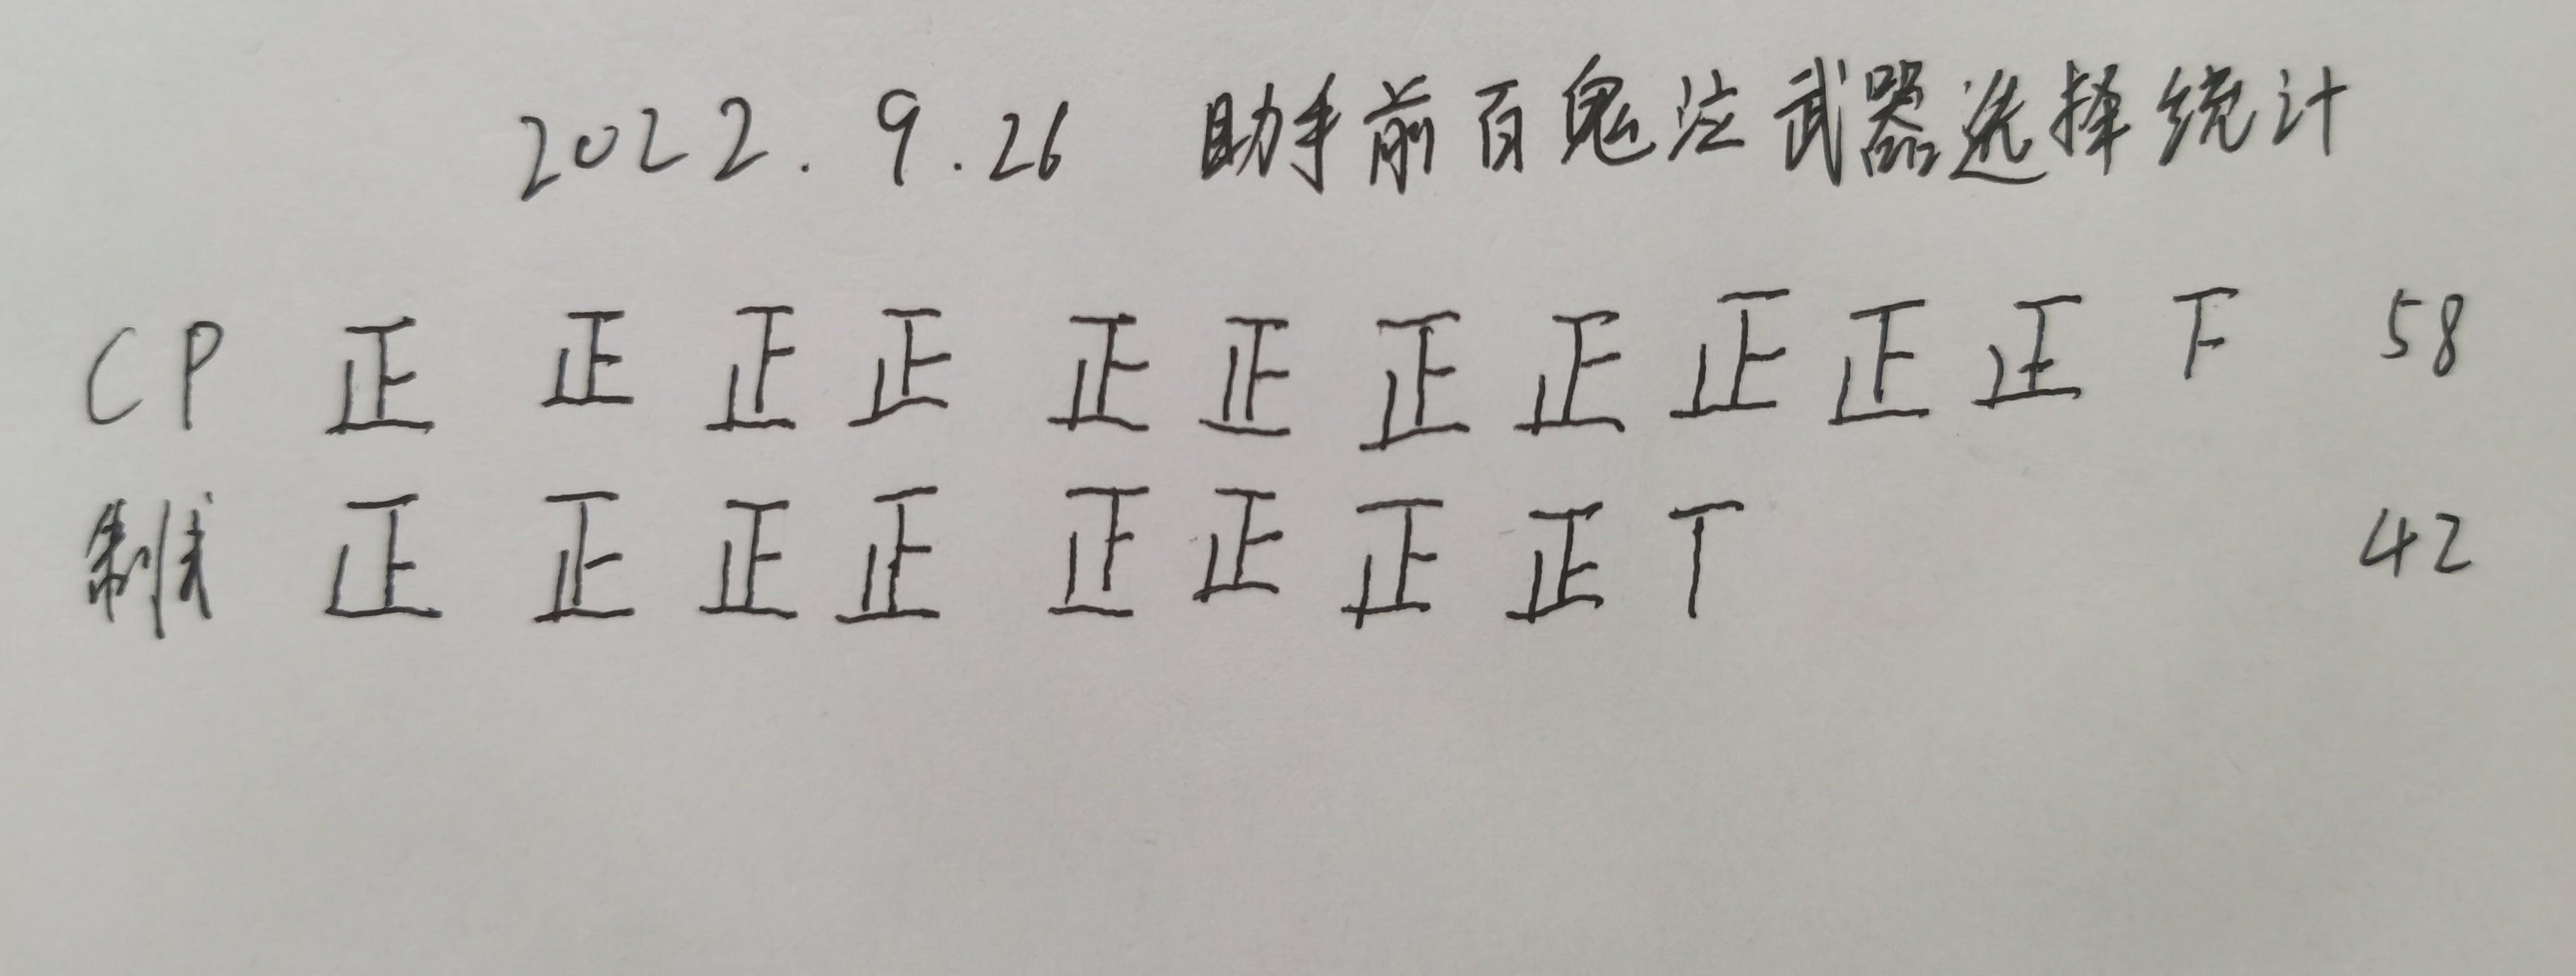 2022.9.26 助手前百鬼注武器选择统计
CP 正 正 正 正 正 正 正 正 正 正 正 𠄟 58
制式 正 正 正 正 正 正 正 正 丅 42